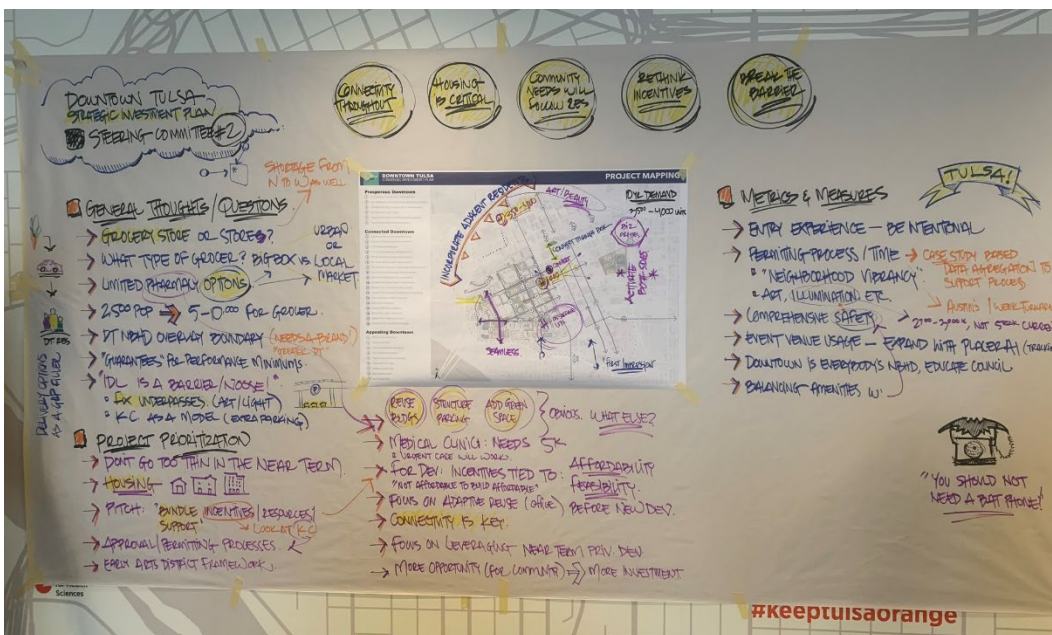 DOWNTOWN TULSA
STRATEGIC INVESTMENT PLAN
STEERING COMMITTEE #2
CONNECTIVITY
THROUGHOUT
HOUSING
IS CRITICAL
COMMUNITY
NEEDS WILL
FOLLOW RES
RETHINK
INCENTIVES
BREAK THE
BARRIER
SHORTAGE FROM
N TO W AS WELL
GENERAL THOUGHTS/QUESTIONS
GROCERY STORE OR STORES?
WHAT TYPE OF GROCER? BIG BOX VS LOCAL
URBAN
OR
MARKET
LIMITED PHARMACY OPTIONS
2500 POP 5-0.000 FOR GROCER.
DT NBHD OVERLAY BOUNDARY (NEEDS A BRAND)
"GREATER DT"
"GUARANTEES" FOR PERFORMANCE MINIMUMS.
"IDL IS A BARRIER/NOOSE!"
FIX UNDERPASSES. (ART/LIGHT)
KC AS A MODEL (EXTRA PARKING)
DT RES
DELIVERY OPTIONS
AS A GAP FILLER
PROJECT PRIORITIZATION
DON'T GO TOO THIN IN THE NEAR TERM.
HOUSING
PITCH: "BUNDLE INCENTIVES/RESOURCES/
SUPPORT"
LOOK AT KC
APPROVAL/PERMITTING PROCESSES.
EARLY ARTS DISTRICT FRAMEWORK
DOWNTOWN TULSA
PROJECT MAPPING
Prosperous Downtown
Connected Downtown
Appealing Downtown
INCORPORATE ADJACENT RESIDENTS
ART/BEAUTY
10 YR DEMAND
3,500 - 4,000 UNITS
ACTIVATE
BOTH SIDES
SEAMLESS
"FIRST IMPRESSION"
REUSE
BLDGS
STRUCTURE
PARKING
ADD GREEN
SPACE
OBVIOUS. WHAT ELSE?
MEDICAL CLINIC: NEEDS 5K
URGENT CARE WILL WORK.
FOR DEV: INCENTIVES TIED TO: AFFORDABILITY
"NOT AFFORDABLE TO BUILD AFFORDABLE" FEASIBILITY.
FOCUS ON ADAPTIVE REUSE (office) BEFORE NEW DEV.
CONNECTIVITY IS KEY.
FOCUS ON LEVERAGING NEAR TERM PRIV. DEV.
MORE OPPORTUNITY (FOR COMMUNITY) MORE INVESTMENT
TULSA!
METRICS & MEASURES
ENTRY EXPERIENCE - BE INTENTIONAL
PERMITTING PROCESS/TIME CASE STUDY BASED
DATA AGGREGATION TO
SUPPORT PROCESS
"NEIGHBORHOOD VIBRANCY"
ART, ILLUMINATION, ETC.
AUSTIN'S 1 WEEK TURNAROUND
COMPREHENSIVE SAFETY
EVENT VENUE USAGE - EXPAND WITH PLACER AI
DOWNTOWN IS EVERYBODY'S NBHD, EDUCATE COUNCIL
BALANCING AMENITIES W:
"YOU SHOULD NOT
NEED A BAT PHONE!"
Sciences
#keeptulsaorange